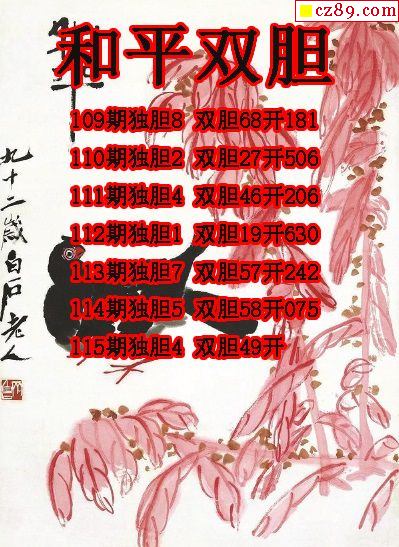 cz89.com
和平双胆
109期独胆8 双胆68开181
110期独胆2 双胆27开506
111期独胆4 双胆46开206
112期独胆1 双胆19开630
113期独胆7 双胆57开242
114期独胆5 双胆58开075
115期独胆4 双胆49开
九十二歲白石老人